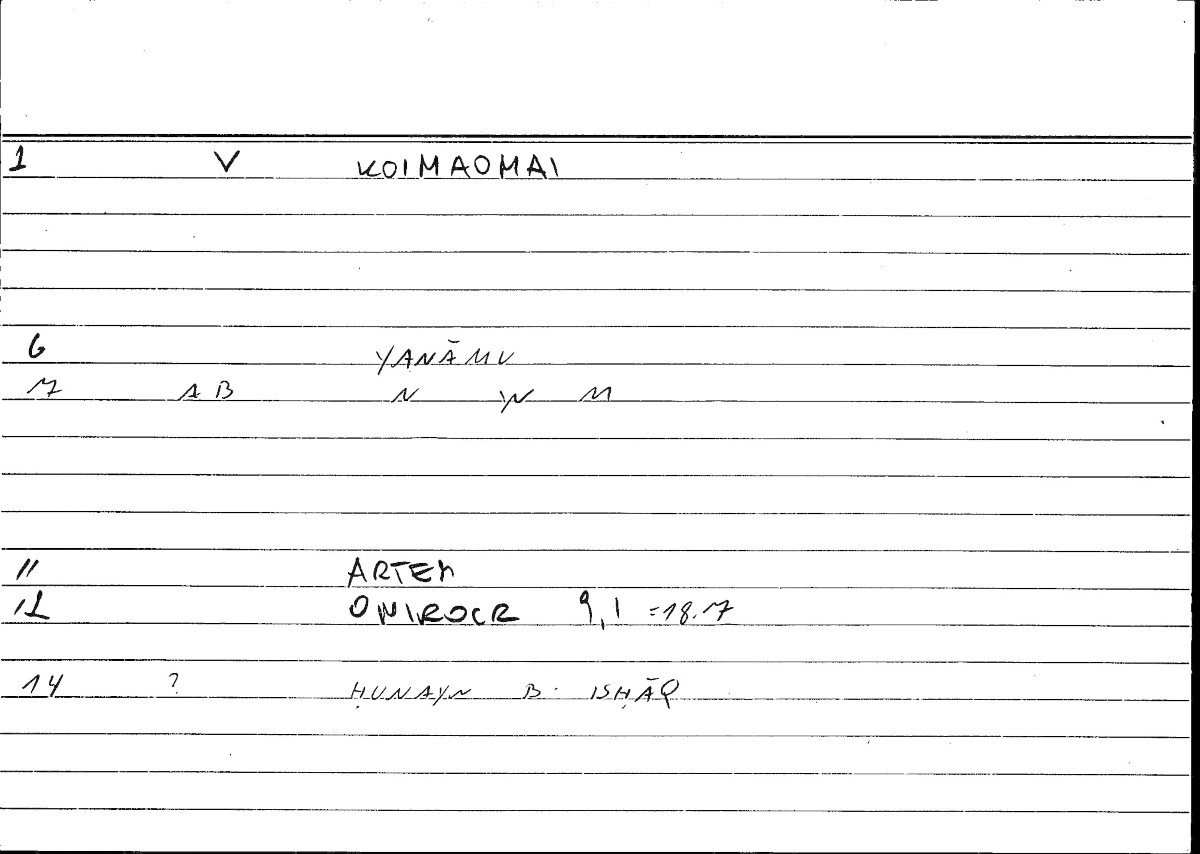 1 V KOIMAOMAI
6 YANĀMU
7 AB N W M
11 ARTEM
12 ONIROCR 9,1 =18.7
14 ? ḤUNAYN B. ISḤĀQ